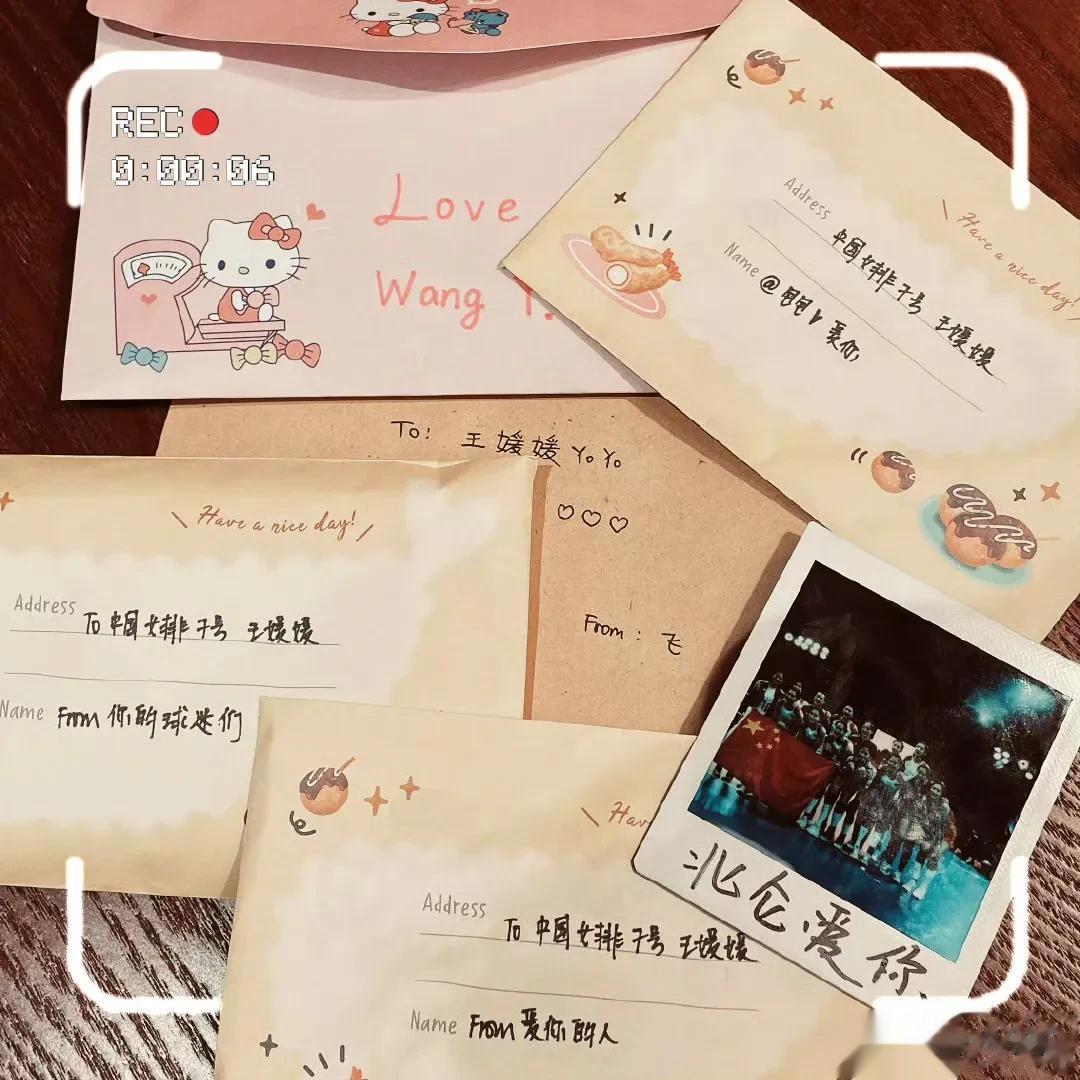 REC
0:00:06
Love
Wang Y.
Address
中国女排 7号 王媛媛
Name
爱你
Have a nice day!
To: 王媛媛 YoYo
♡♡♡
From: 飞
Have a nice day!
Address
To 中国女排 7号 王媛媛
Name From 你的球迷们
Have
Address
To 中国女排 7号 王媛媛
Name From 爱你的人
北仑爱你